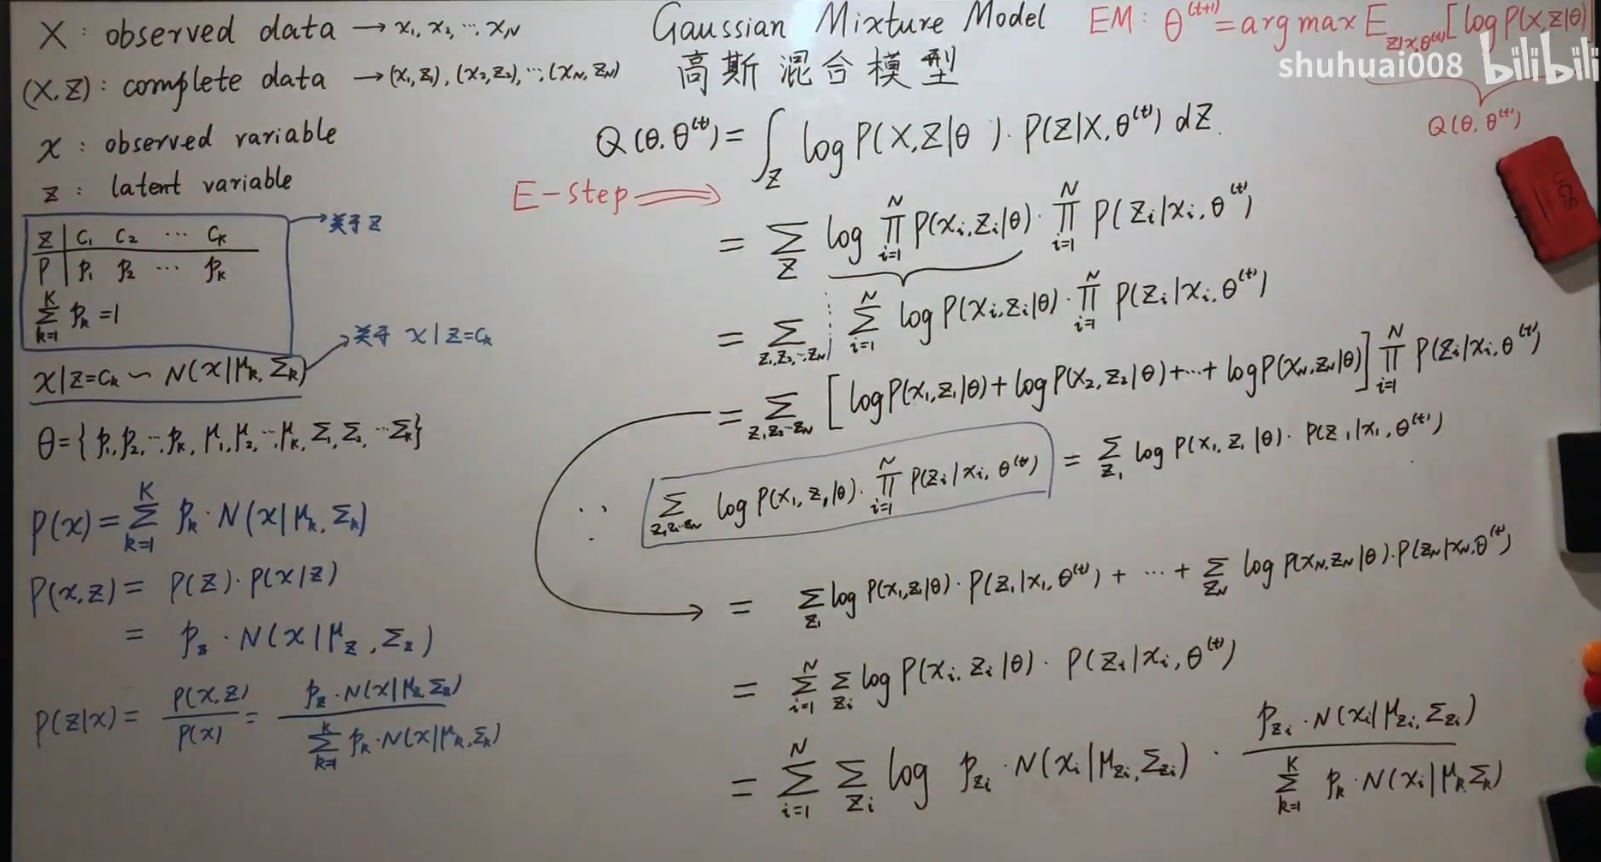 X : observed data → x₁, x₂, ⋯, x_N
(X, Z) : complete data → (x₁, z₁), (x₂, z₂), ⋯, (x_N, z_N)
x : observed variable
z : latent variable
z | C₁ C₂ ⋯ C_K
P | p₁ p₂ ⋯ p_K
∑_{k=1}^{K} p_k = 1
→ 关于 z
x|z=C_k ∼ N(x|μ_k, Σ_k)
→ 关于 x|z=C_k
θ = { p₁, p₂, ⋯, p_K, μ₁, μ₂, ⋯, μ_K, Σ₁, Σ₂, ⋯ Σ_K }
P(x) = ∑_{k=1}^{K} p_k · N(x|μ_k, Σ_k)
P(x, z) = P(z) · P(x|z)
= p_z · N(x|μ_z, Σ_z)
P(z|x) = P(x, z) / P(x) = p_z · N(x|μ_z, Σ_z) / ∑_{k=1}^{K} p_k · N(x|μ_k, Σ_k)
Gaussian Mixture Model
高斯混合模型
EM : θ^{(t+1)} = arg max E_{z|x,θ^{(t)}} [log P(x, z|θ)]
Q(θ, θ^{(t)})
shuhuai008 bilibili
Q(θ, θ^{(t)}) = ∫_Z log P(X, Z|θ) · P(Z|X, θ^{(t)}) dZ.
E-step ⟹
= ∑_Z log ∏_{i=1}^{N} P(x_i, z_i|θ) · ∏_{i=1}^{N} P(z_i|x_i, θ^{(t)})
= ∑_{z₁,z₂,⋯,z_N} ∑_{i=1}^{N} log P(x_i, z_i|θ) · ∏_{i=1}^{N} P(z_i|x_i, θ^{(t)})
= ∑_{z₁,z₂⋯z_N} [log P(x₁, z₁|θ) + log P(x₂, z₂|θ) + ⋯ + log P(x_N, z_N|θ)] ∏_{i=1}^{N} P(z_i|x_i, θ^{(t)})
∑_{z₁,z₂⋯z_N} log P(x₁, z₁|θ) · ∏_{i=1}^{N} P(z_i|x_i, θ^{(t)}) = ∑_{z₁} log P(x₁, z₁|θ) · P(z₁|x₁, θ^{(t)})
= ∑_{z₁} log P(x₁, z₁|θ) · P(z₁|x₁, θ^{(t)}) + ⋯ + ∑_{z_N} log P(x_N, z_N|θ) · P(z_N|x_N, θ^{(t)})
= ∑_{i=1}^{N} ∑_{z_i} log P(x_i, z_i|θ) · P(z_i|x_i, θ^{(t)})
= ∑_{i=1}^{N} ∑_{z_i} log p_{z_i} · N(x_i|μ_{z_i}, Σ_{z_i}) · p_{z_i} · N(x_i|μ_{z_i}, Σ_{z_i}) / ∑_{k=1}^{K} p_k · N(x_i|μ_k, Σ_k)